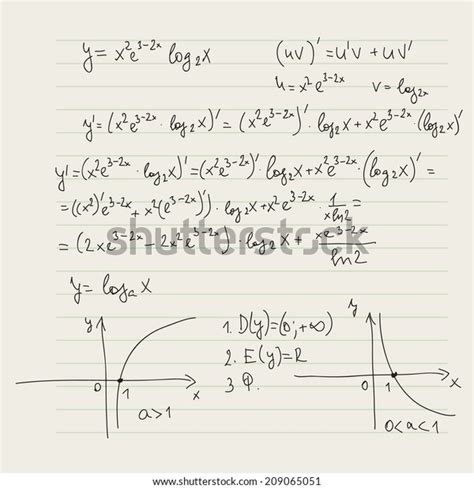 y = x²e³⁻²ˣ log₂x (uv)' = u'v + uv'
u = x²e³⁻²ˣ v = log₂ₓ
y' = (x²e³⁻²ˣ · log₂x)' = (x²e³⁻²ˣ)' · log₂x + x²e³⁻²ˣ · (log₂x)'
y' = (x²e³⁻²ˣ · log₂x)' = (x²e³⁻²ˣ)' · log₂x + x²e³⁻²ˣ · (log₂x)' =
= ((x²)'e³⁻²ˣ + x²(e³⁻²ˣ)') · log₂x + x²e³⁻²ˣ · 1/(x ln2) =
= (2xe³⁻²ˣ − 2x²e³⁻²ˣ) · log₂x + xe³⁻²ˣ/ln2
shutterstock
y = logₐx
y
0 1 x
a > 1
1. D(y) = (0; +∞)
2. E(y) = R
3.
y
0 1 x
0 < a < 1
www.shutterstock.com · 209065051